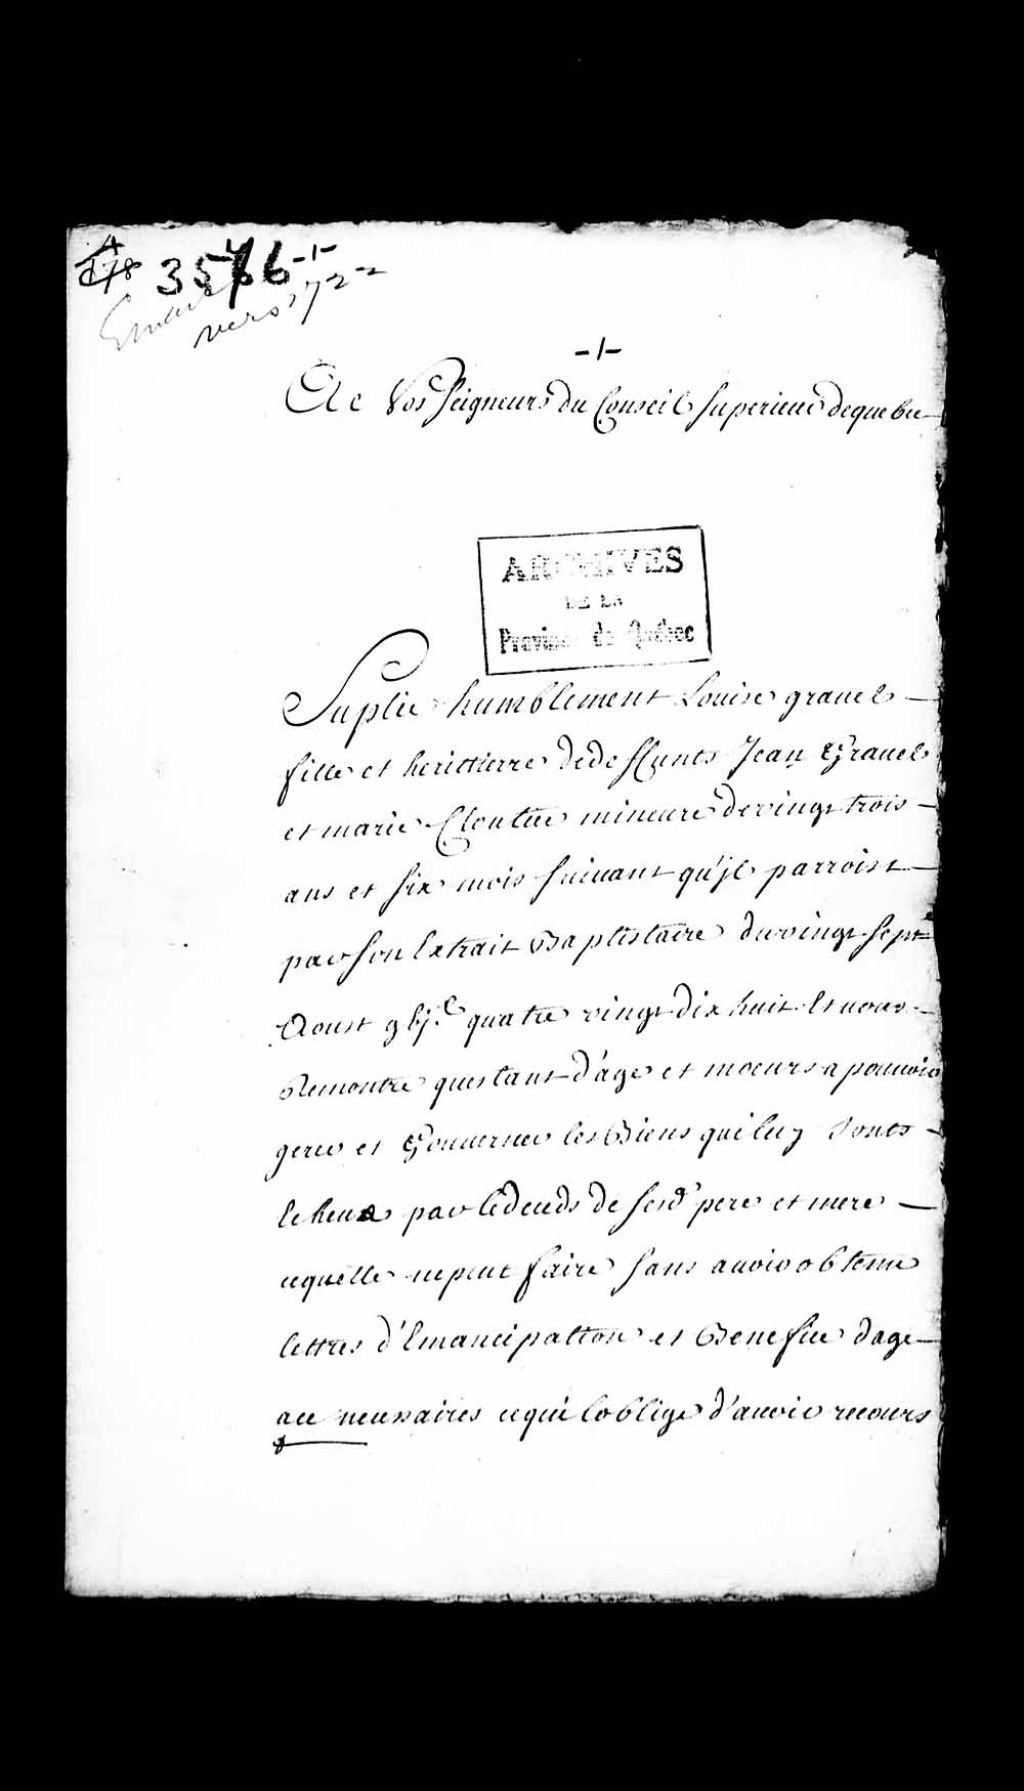 3576 -1-
vers 1722
-1-
A Nos Seigneurs du Conseil Superieur de quebec
ARCHIVES
DE LA
Province de Québec
Suplie humblement Louise gravel
fille et herittierre de deffunts Jean Gravel
et marie Cloutier mineure de vingt trois
ans et six mois suivant qu'jl parroist
par son Extrait Baptistaire du vingt sept
Aoust gbjc quatre vingt dix huit Et vous
Remontre questant d'âge et moeurs a pouvoir
gerer et Gouverner les Biens qui luy sonts
Echeus par le deceds de sesd. pere et mere
cequelle nepeut faire sans avoir obtenu
lettres d'Emancipation et Benefice dage
ace necessaires cequi loblige d'avoir recours